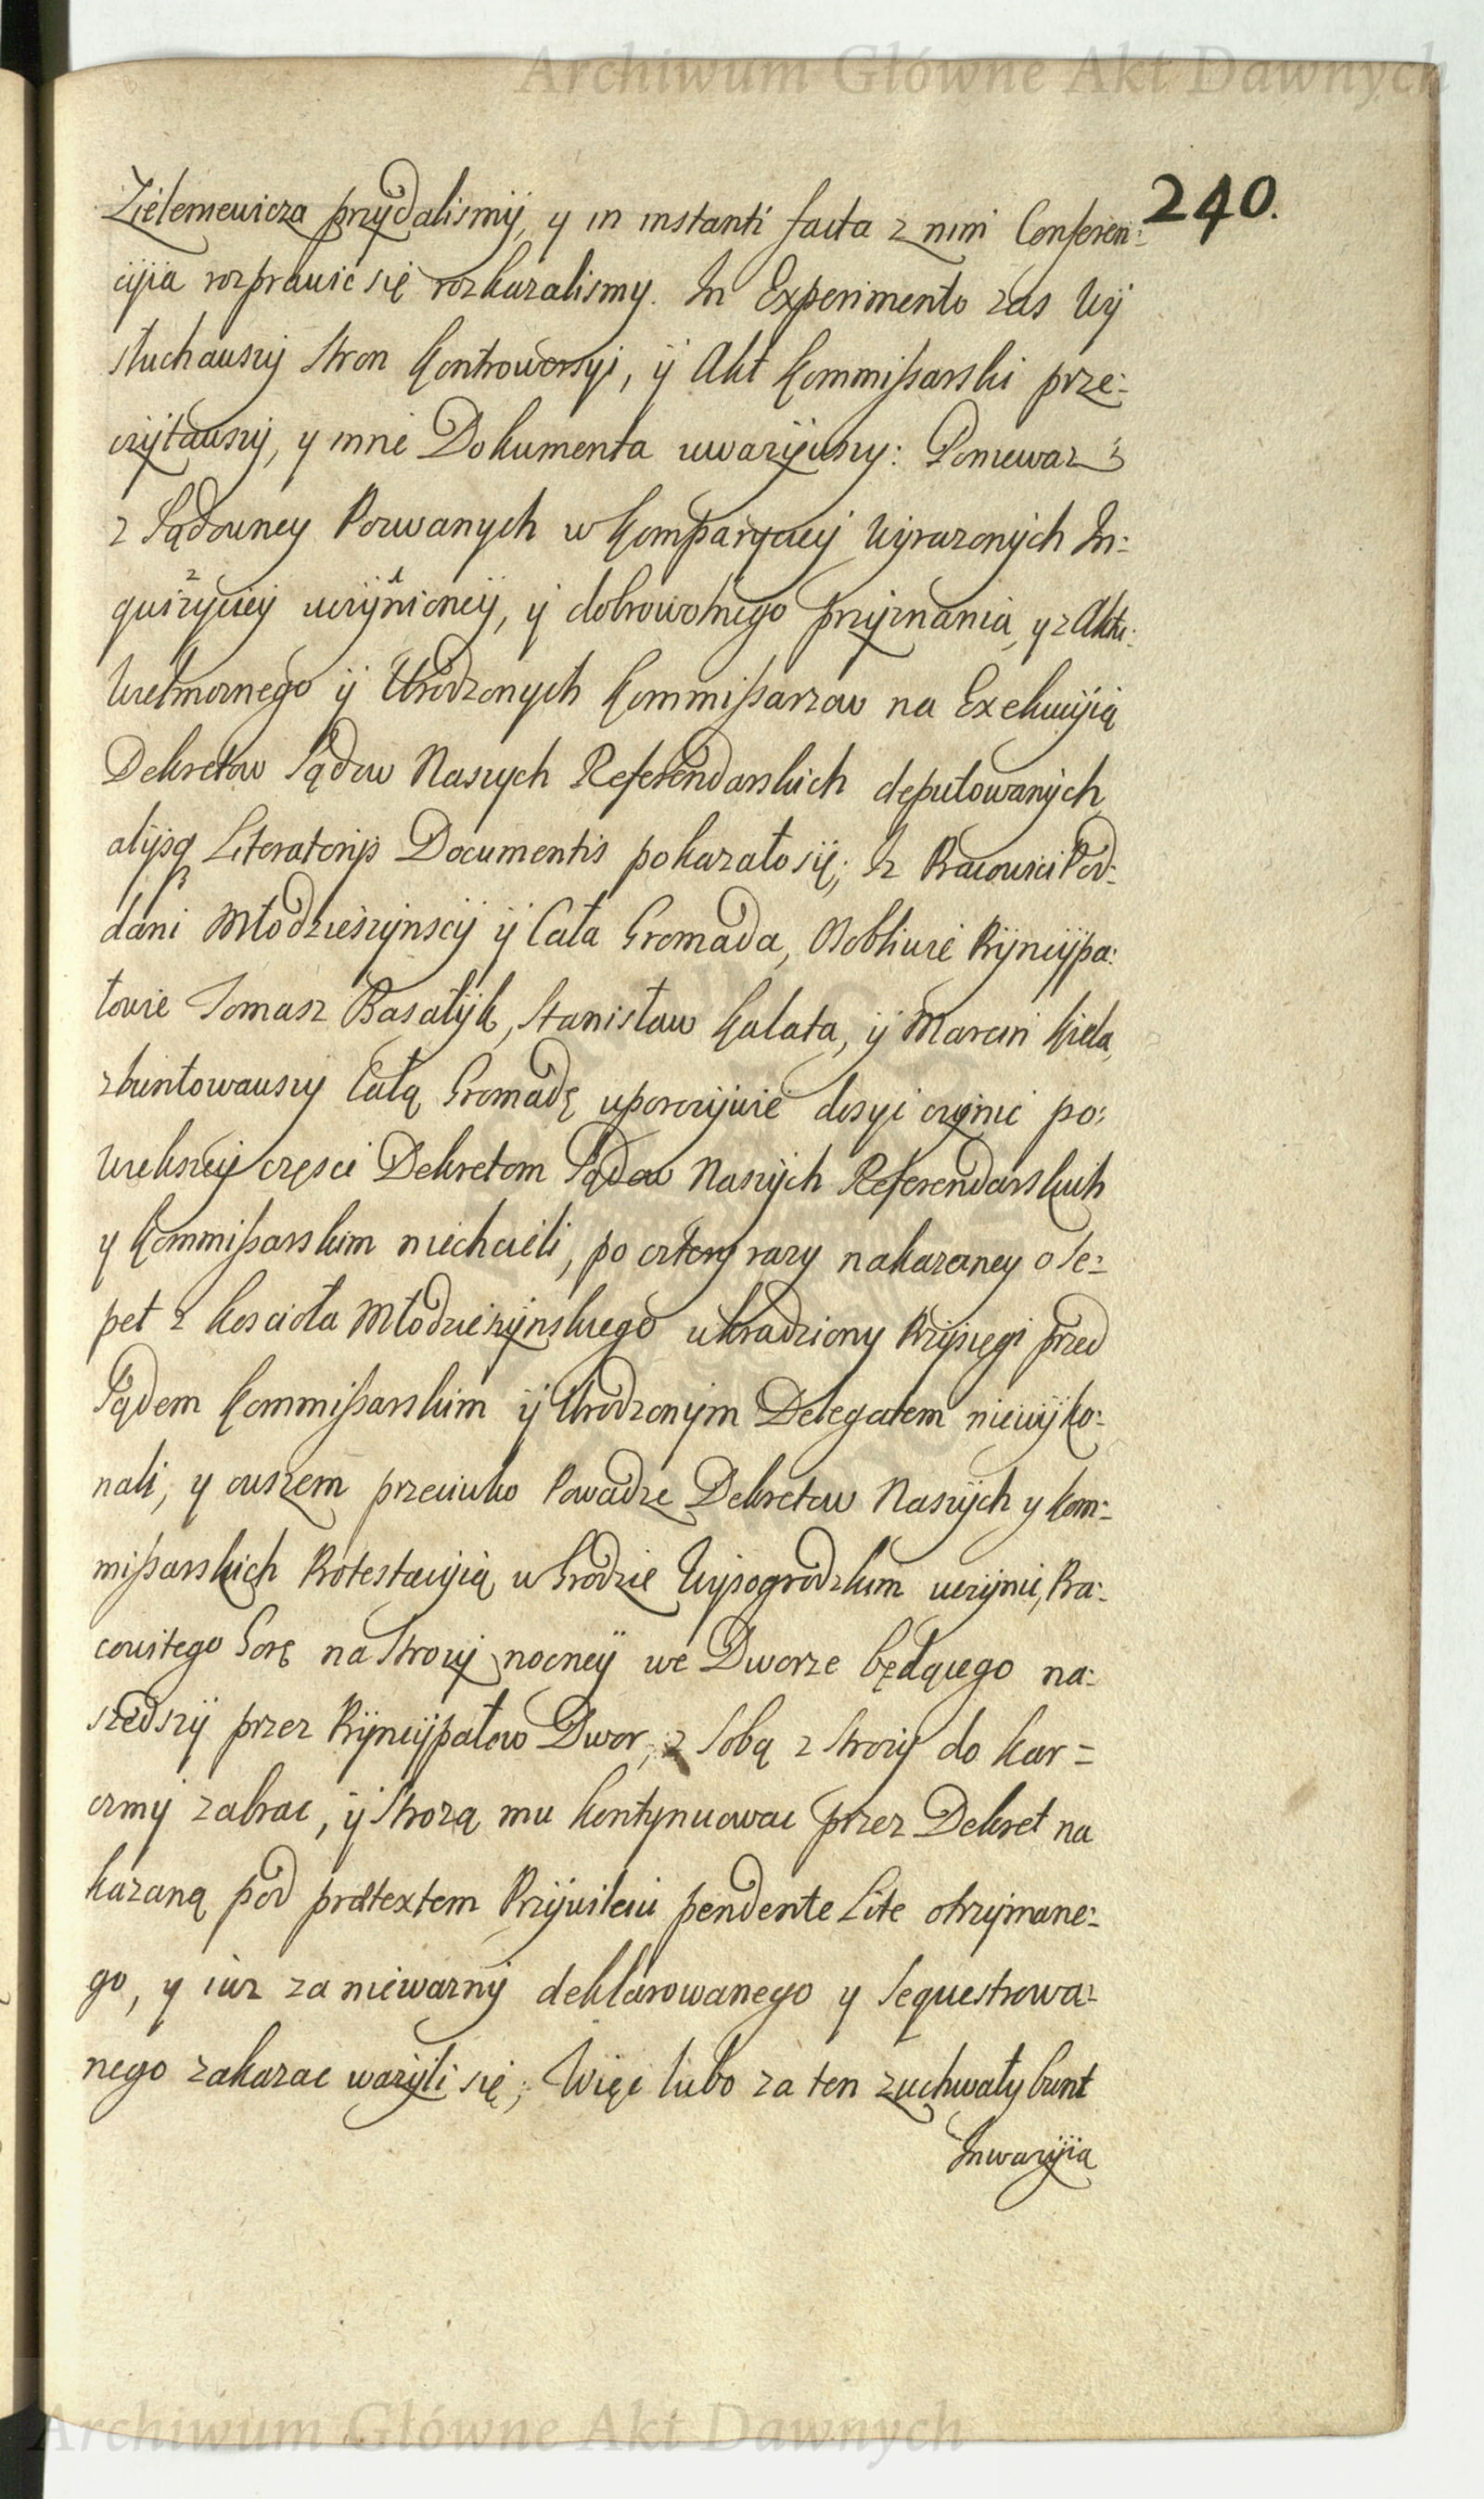 Archiwum Główne Akt Dawnych
240.
Zielemewicza przydalismy, y in instanti facta z nim Conferen:
cyia rozprawic się rozkazalismy. In Experimento zas wy
słuchawszy stron Kontrowersyi, y Akt Kommissarski prze:
czytawszy, y inne Dokumenta uwazywszy: Poniewaz
z Sądowney Pozwanych w Komparycyey wyrazonych In:
quizycyey uczynioney, y dobrowolnego przyznania, y z Aktu
Wielmoznego y Urodzonych Kommissarzow na Exekucyią
Dekretow Sądow Naszych Referendarskich deputowanych
alijsq Literatorijs Documentis pokazało się; Iz Pracowici Pod:
dani Młodzieszynscy y Cała Gromada, Osobliwie Pryncypa:
łowie Tomasz Basałyk, Stanisław Kałata, y Marcin Kiela,
zbuntowawszy Całą Gromadę uporczywie dosyc czynic po:
wiekszey częsci Dekretom Sądow Naszych Referendarskich
y Kommissarskim niechcieli, po cztery razy nakazaney o Se:
pet z koscioła Młodzieszynskiego ukradziony Przysięgi przed
Sądem Kommissarskim y Urodzonym Delegatem niewyko:
nali, y owszem przeciwko Powadze Dekretow Naszych y Kom:
missarskich Protestacyią w Grodzie Wyszogrodzkim uczynic, Pra:
cowitego Gorę na Strozy nocney we Dworze będącego na:
szedszy przez Pryncypałow Dwor, z sobą z Strozy do kar=
czmy zabrac, y Strozą mu kontynuowac przez Dekret na
kazaną pod prætextem Przywileiu pendente Lite otrzymane:
go, y iuz za niewazny deklarowanego y sequestrowa:
nego zakazac wazyli się; Więc lubo za ten zuchwały bunt
Inwazyia
Archiwum Główne Akt Dawnych